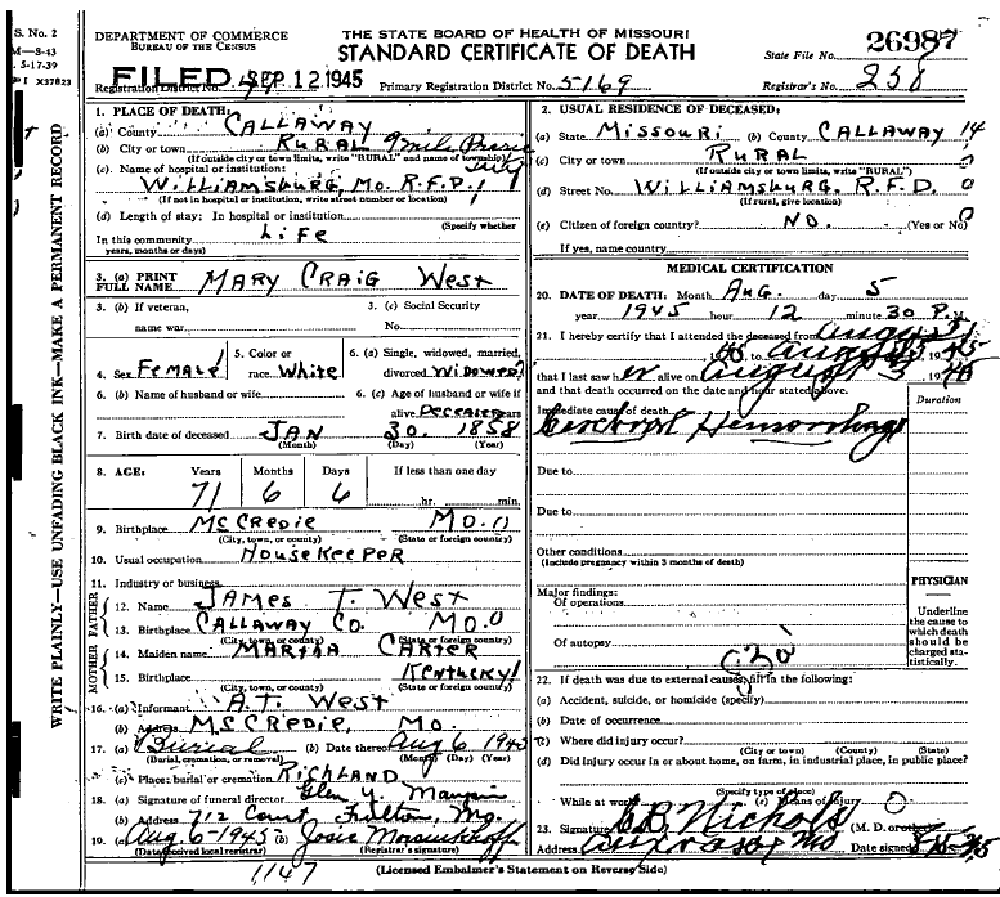 S. No. 2
M—8-43
5-17-39
X37823
WRITE PLAINLY—USE UNFADING BLACK INK—MAKE A PERMANENT RECORD
DEPARTMENT OF COMMERCE
BUREAU OF THE CENSUS
THE STATE BOARD OF HEALTH OF MISSOURI
STANDARD CERTIFICATE OF DEATH
State File No. 26987
FILED SEP 12 1945
Registration District No.
Primary Registration District No. 5169
Registrar's No. 258
1. PLACE OF DEATH:
(a) County CALLAWAY
(b) City or town RURAL 9 mile Prairie
(If outside city or town limits, write "RURAL" and name of township)
(c) Name of hospital or institution:
WILLIAMSBURG, MO. R.F.D. 1
(If not in hospital or institution, write street number or location)
(d) Length of stay: In hospital or institution
(Specify whether
In this community LIFE
years, months or days)
3. (a) PRINT FULL NAME MARY CRAIG West
3. (b) If veteran, name war
3. (c) Social Security No.
4. Sex FEMALE
5. Color or race White
6. (a) Single, widowed, married, divorced WIDOWED
6. (b) Name of husband or wife
6. (c) Age of husband or wife if alive DECEASED years
7. Birth date of deceased JAN 30. 1858
(Month) (Day) (Year)
8. AGE: Years Months Days If less than one day
71 6 6 hr. min.
9. Birthplace MCCREDIE MO. 11
(City, town, or county) (State or foreign country)
10. Usual occupation HOUSEKEEPER
11. Industry or business
FATHER
12. Name JAMES T. WEST
13. Birthplace CALLAWAY CO. MO. 0
(City, town, or county) (State or foreign country)
MOTHER
14. Maiden name MARTHA CARTER
15. Birthplace KENTUCKY 1
(City, town, or county) (State or foreign country)
16. (a) Informant A.T. WEST
(b) Address MCCREDIE, MO.
17. (a) Burial (b) Date thereof Aug 6 1945
(Burial, cremation, or removal) (Month) (Day) (Year)
(c) Place: burial or cremation RICHLAND
18. (a) Signature of funeral director Glen Y. Maupin
(b) Address 712 Court Fulton, Mo.
19. (a) Aug. 6-1945 (b) Josie
(Date received local registrar) (Registrar's signature)
1147
2. USUAL RESIDENCE OF DECEASED:
(a) State MISSOURI (b) County CALLAWAY 14
(c) City or town RURAL
(If outside city or town limits, write "RURAL")
(d) Street No. WILLIAMSBURG, R.F.D. 0
(If rural, give location)
(e) Citizen of foreign country? NO. (Yes or No)
If yes, name country
MEDICAL CERTIFICATION
20. DATE OF DEATH: Month AUG. day 5
year 1945 hour 12 minute 30 P.M.
21. I hereby certify that I attended the deceased from August
to August 19 45
that I last saw her alive on August 3 19
and that death occurred on the date and hour stated above.
Duration
Immediate cause of death
Cerebral Hemorrhage
Due to
Due to
Other conditions
(Include pregnancy within 3 months of death)
Major findings:
Of operations
Of autopsy
PHYSICIAN
Underline the cause to which death should be charged statistically.
22. If death was due to external causes, fill in the following:
(a) Accident, suicide, or homicide (specify)
(b) Date of occurrence
(c) Where did injury occur?
(City or town) (County) (State)
(d) Did injury occur in or about home, on farm, in industrial place, in public place?
(Specify type of place)
While at work (e) Means of injury 0
23. Signature Nichols (M. D. or other)
Address Mo Date signed
(Licensed Embalmer's Statement on Reverse Side)